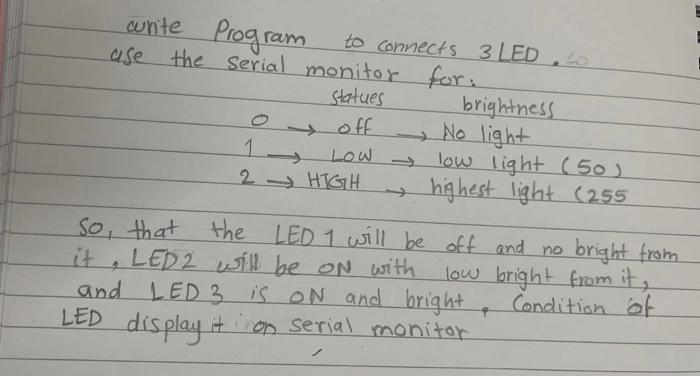 write Program to connects 3 LED.
use the serial monitor for:
statues brightness
0 → off → No light
1 → LOW → low light (50)
2 → HIGH → highest light (255
So, that the LED 1 will be off and no bright from
it, LED2 will be ON with low bright from it,
and LED 3 is ON and bright. Condition of
LED display it on serial monitor